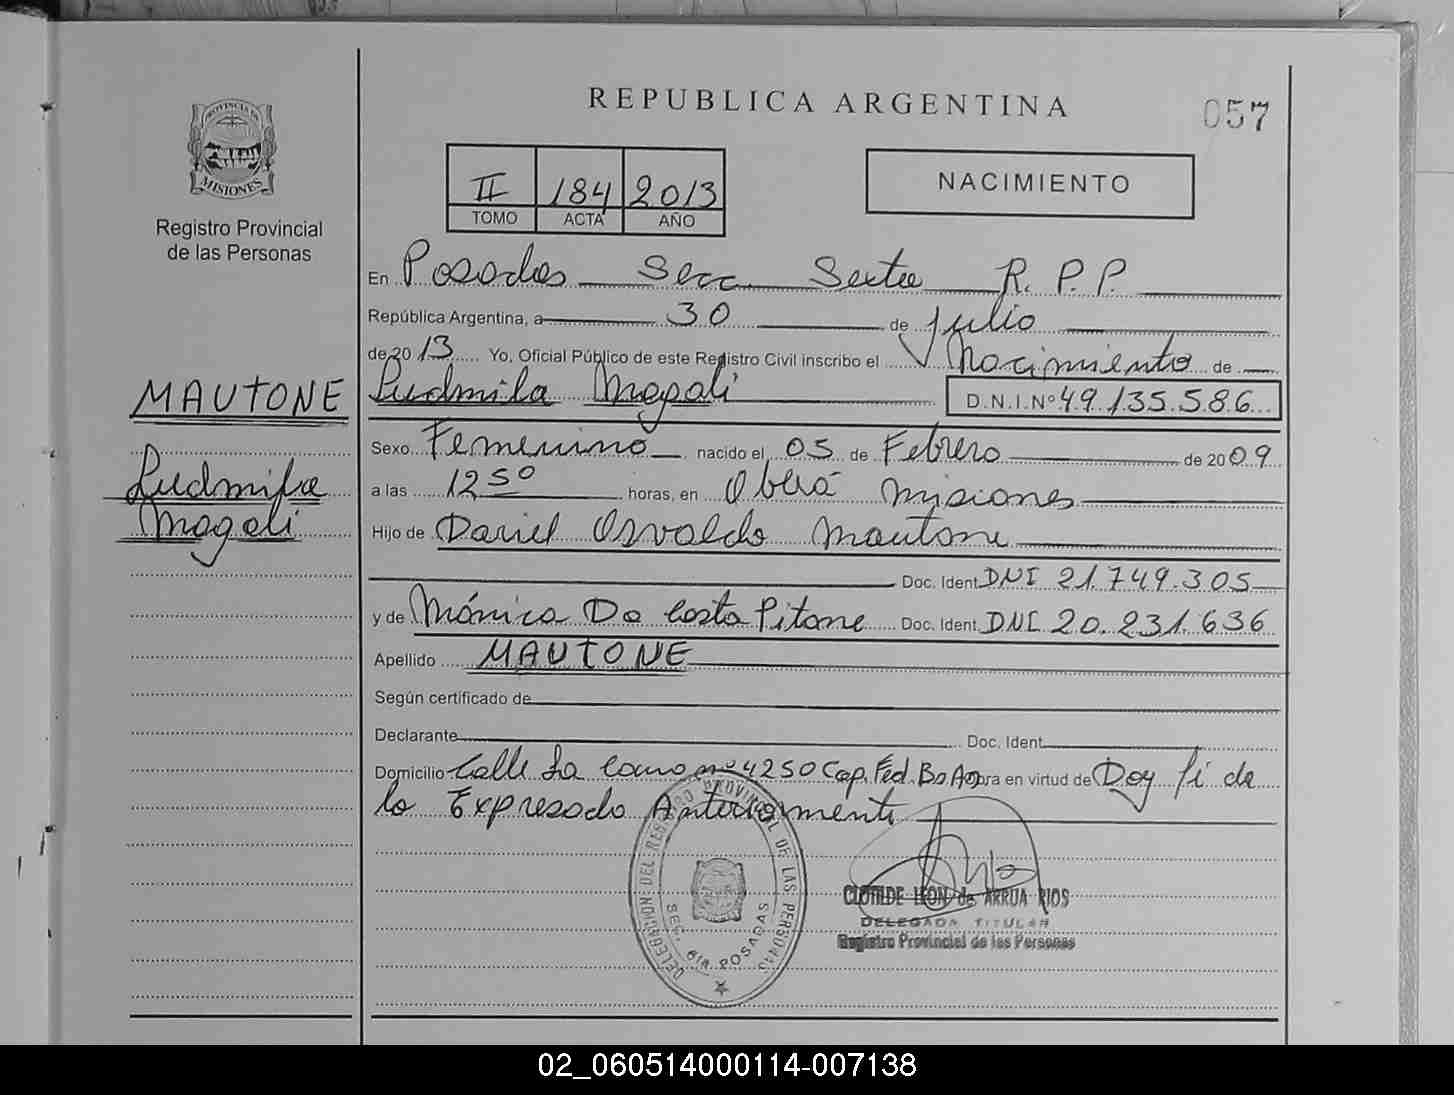 REPUBLICA ARGENTINA
057
PROVINCIA DE
MISIONES
Registro Provincial
de las Personas
II 184 2013
TOMO ACTA AÑO
NACIMIENTO
En Posadas Secc. Sexta R.P.P.
República Argentina, a 30 de julio
de 2013 Yo, Oficial Público de este Registro Civil inscribo el Nacimiento de
MAUTONE
Ludmila Magali
Ludmila Magali D.N.I.Nº 49.135.586
Sexo Femenino nacido el 05 de Febrero de 2009
a las 12 50 horas, en Oberá Misiones
Hijo de Daniel Osvaldo Mautone
Doc. Ident DNI 21.749.305
y de Mónica Da Costa Pitane Doc. Ident. DNI 20.231.636
Apellido MAUTONE
Según certificado de
Declarante Doc. Ident.
Domicilio Calle La nº 4250 Cap. Fed. Bs As obra en virtud de Doy fé de
lo Expresado Anteriormente
DELEGACION DEL REGISTRO PROVINCIAL DE LAS PERSONAS
SEC. 6ta. POSADAS
CLOTILDE LEON de ARRUA RIOS
DELEGADA TITULAR
Registro Provincial de las Personas
02_060514000114-007138